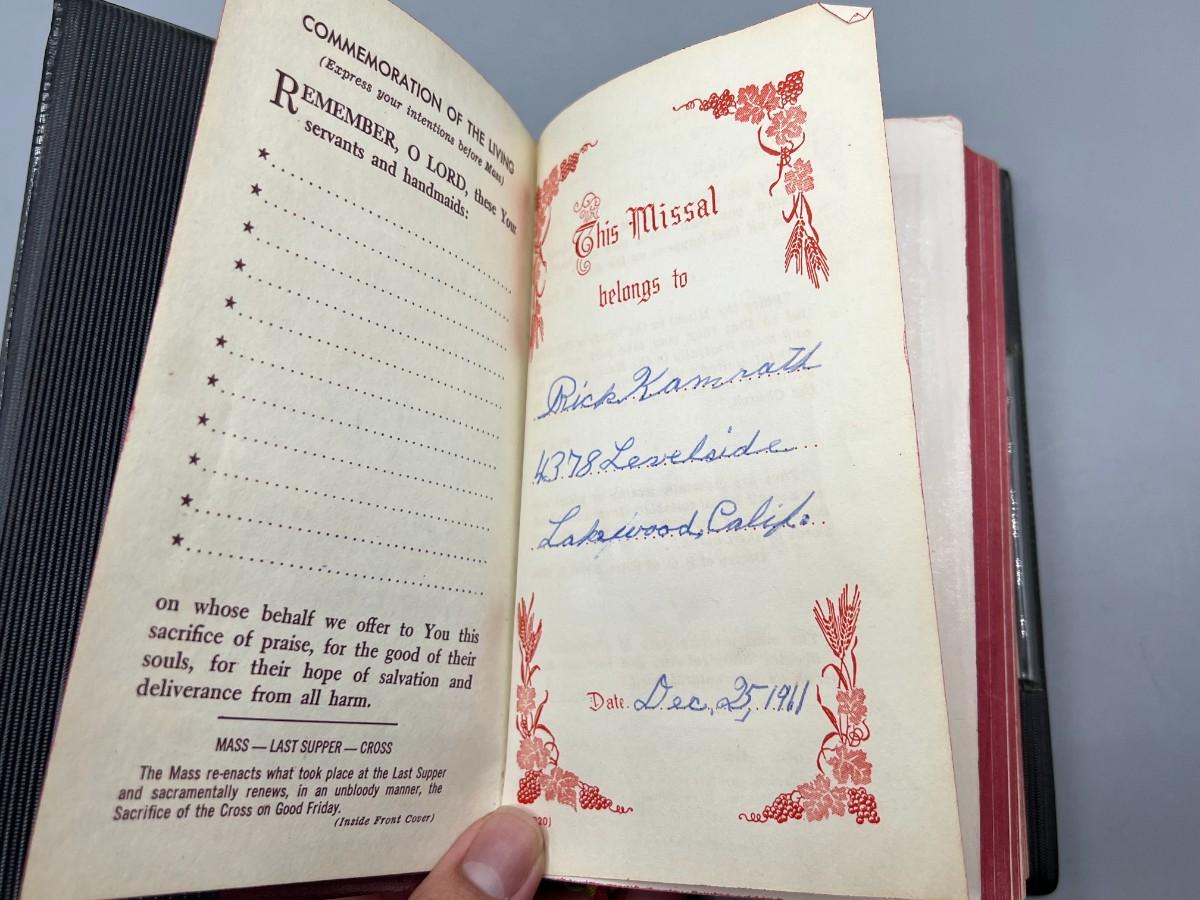 COMMEMORATION OF THE LIVING
(Express your intentions before Mass)
REMEMBER, O LORD, these Your
servants and handmaids:
on whose behalf we offer to You this
sacrifice of praise, for the good of their
souls, for their hope of salvation and
deliverance from all harm.
MASS — LAST SUPPER — CROSS
The Mass re-enacts what took place at the Last Supper
and sacramentally renews, in an unbloody manner, the
Sacrifice of the Cross on Good Friday.
(Inside Front Cover)
This Missal
belongs to
Rick Kamrath
4378 Levelside
Lakewood, Calif.
Date Dec, 25, 1961